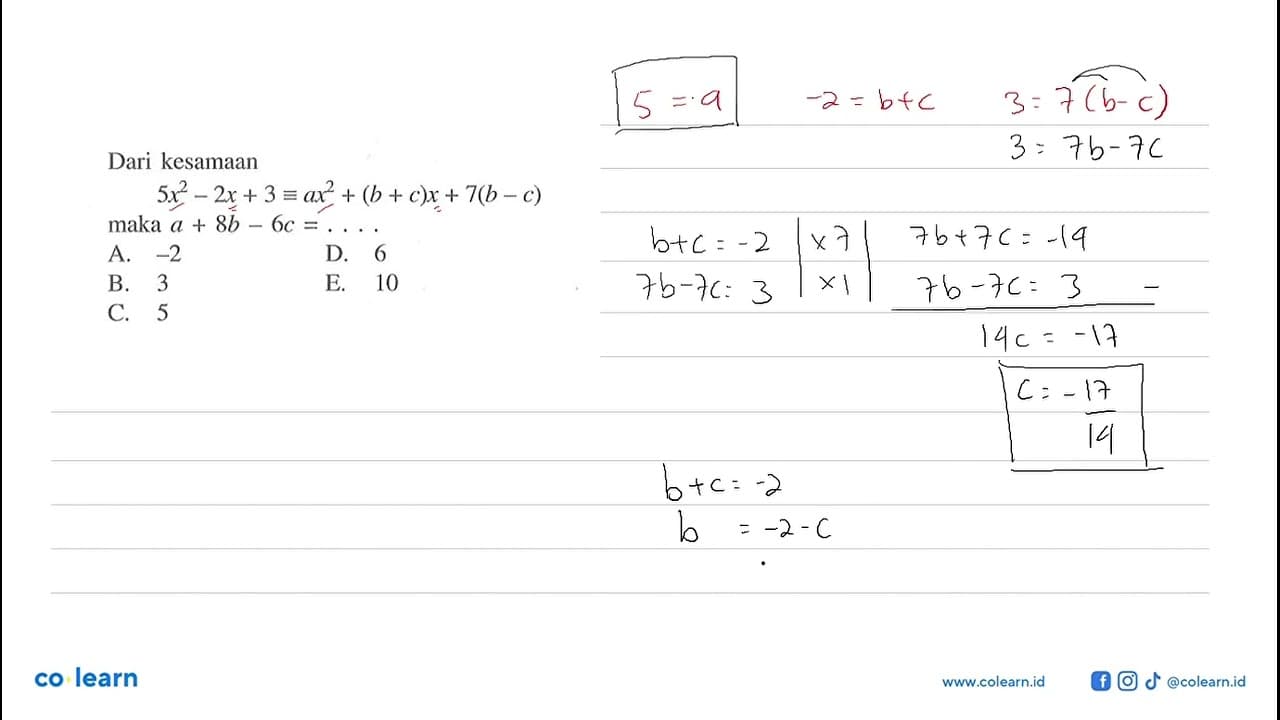 Dari kesamaan
5x² – 2x + 3 ≡ ax² + (b + c)x + 7(b – c)
maka a + 8b – 6c = . . . .
A. –2 D. 6
B. 3 E. 10
C. 5
5 = a -2 = b+c 3 = 7(b-c)
3 = 7b-7c
b+c = -2 | ×7 | 7b+7c = -14
7b-7c = 3 | ×1 | 7b-7c = 3 –
14c = -17
c = -17
14
b+c = -2
b = -2-c
co learn
www.colearn.id @colearn.id